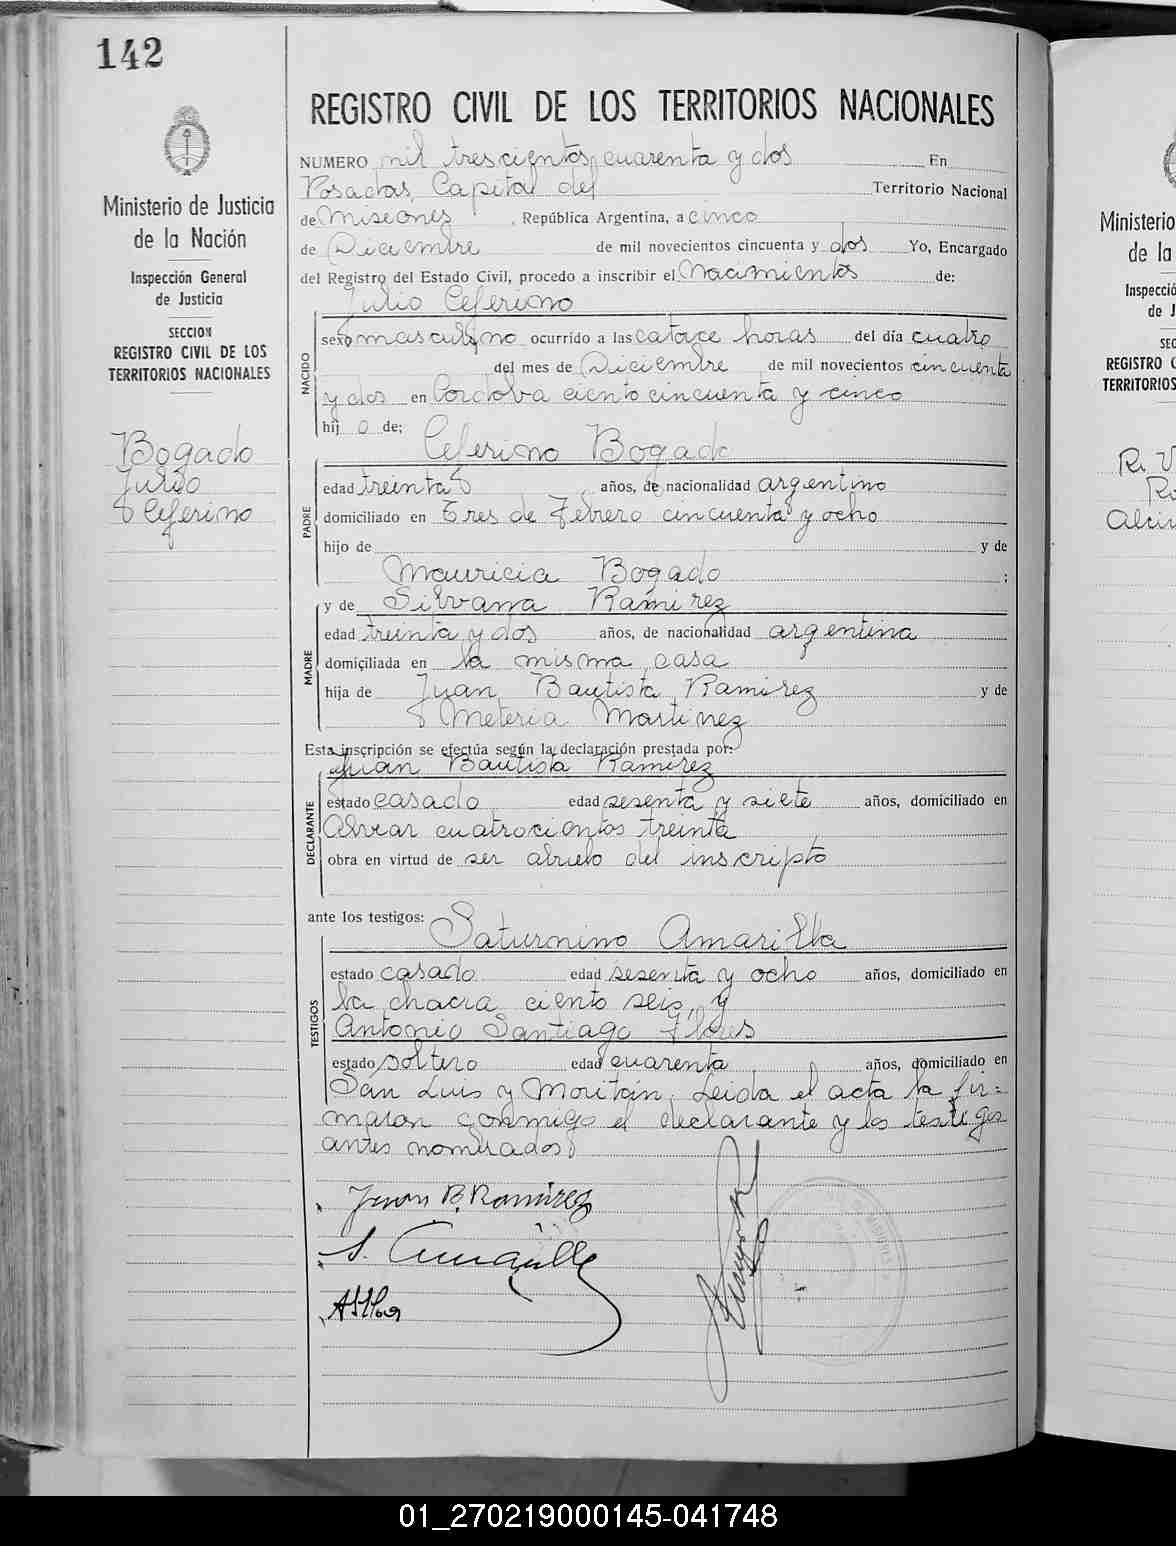 142
Ministerio de Justicia
de la Nación
Inspección General
de Justicia
SECCION
REGISTRO CIVIL DE LOS
TERRITORIOS NACIONALES
Bogado
Julio
Ceferino
REGISTRO CIVIL DE LOS TERRITORIOS NACIONALES
NUMERO mil trescientos, cuarenta y dos En
Posadas, Capital del Territorio Nacional
de Misiones, República Argentina, a cinco
de Diciembre de mil novecientos cincuenta y dos Yo, Encargado
del Registro del Estado Civil, procedo a inscribir el Nacimiento de:
Julio Ceferino
NACIDO
sexo masculino ocurrido a las catorce horas del día cuatro
del mes de Diciembre de mil novecientos cincuenta
y dos en Cordoba ciento cincuenta y cinco
hij o de;
Ceferino Bogado
PADRE
edad treinta años, de nacionalidad argentino
domiciliado en Tres de Febrero cincuenta y ocho
hijo de y de
Mauricia Bogado ;
y de Silvana Ramirez
MADRE
edad treinta y dos años, de nacionalidad argentina
domiciliada en la misma casa
hija de Juan Bautista Ramirez y de
Meteria Martinez
Esta inscripción se efectúa según la declaración prestada por:
Juan Bautista Ramirez
DECLARANTE
estado casado edad sesenta y siete años, domiciliado en
Alvear cuatrocientos treinta
obra en virtud de ser abuelo del inscripto
ante los testigos:
Saturnino Amarilla
TESTIGOS
estado casado edad sesenta y ocho años, domiciliado en
la chacra ciento seis, y
Antonio Santiago
estado soltero edad cuarenta años, domiciliado en
San Luis y Moritán, Leida el acta la fir-
maron conmigo el declarante y los testigos
antes nombrados
Juan B. Ramirez
S. Amarilla
Ministerio
de la
Inspecció
de J
SEC
REGISTRO C
TERRITORIOS
01_270219000145-041748